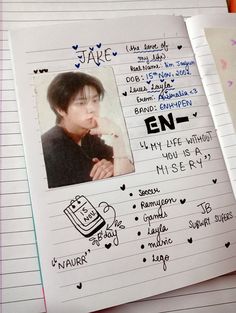 JAKE
(the love of
my life)
Real Name: Sim Jaeyun
DOB: 15 Nov, 2002
Loves Layla
From: Australia <3
BAND: ENHYPEN
EN-
"MY LIFE WITHOUT
YOU IS A
MISERY"
15
NOV
B'day
"NAURR"
• Soccer
• Ramyeon
• Games
• Layla
• music
• Lego
JB
SUBWAY SURFERS